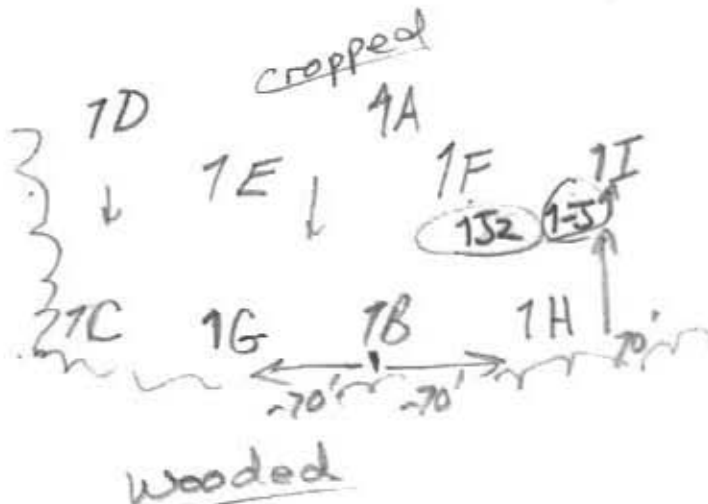 cropped
1D 1A
1E 1F 1I
1J2 1-J1
1C 1G 1B 1H
70'
~70' ~70'
Wooded